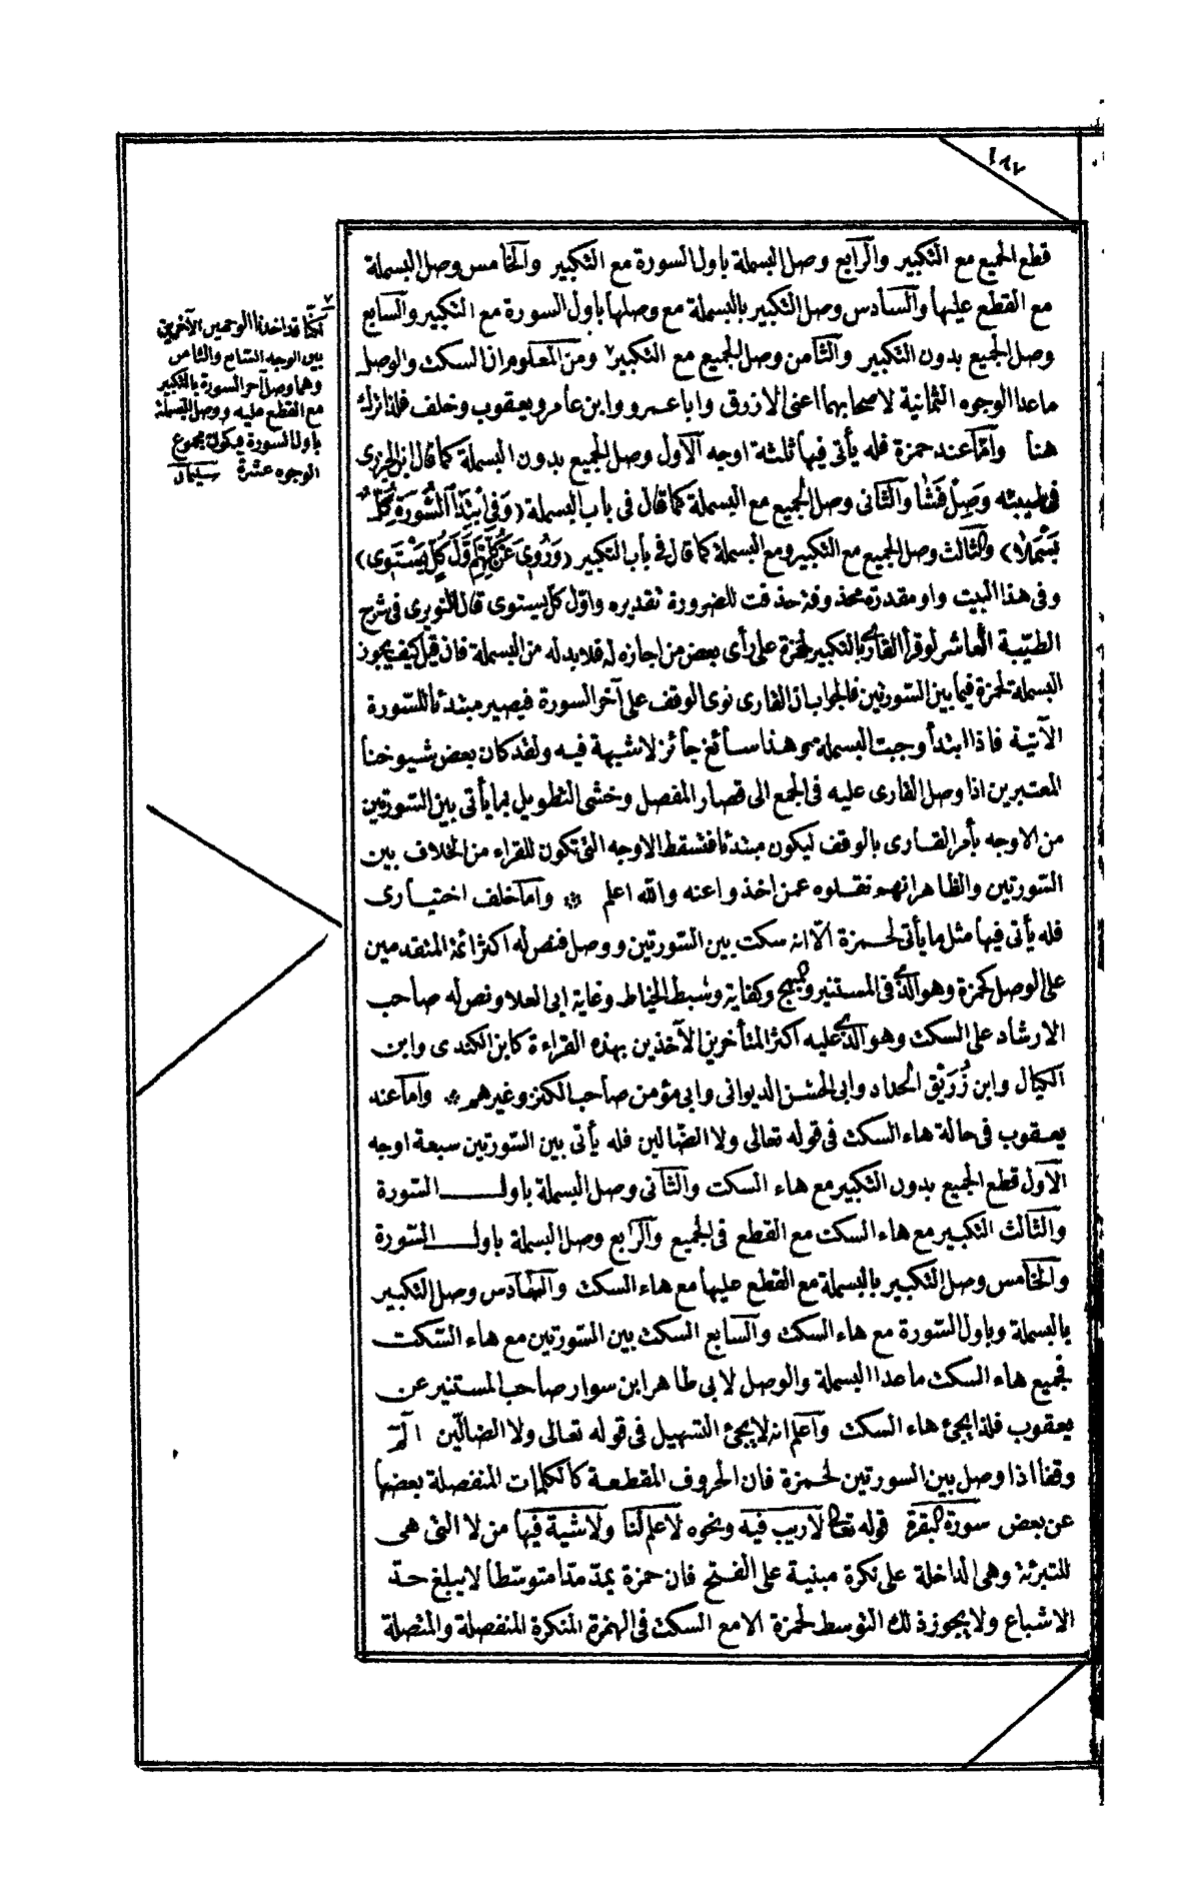 ١٨٧
قطع الجميع مع التكبير والرابع وصل البسملة باول السورة مع التكبير والخامس وصل البسملة
مع القطع عليها والسادس وصل التكبير بالبسملة مع وصلها باول السورة مع التكبير والسابع
وصل الجميع بدون التكبير والثامن وصل الجميع مع التكبير٧ ومن المعلوم ان السكت والوصل
ماعدا الوجوه الثمانية لاصحابهما اعنى الازرق وابا عمرو وابن عامر ويعقوب وخلف فلذا نترك
هنا وامّا عند حمزة فله يأتى فيها ثلثة اوجه الاول وصل الجميع بدون البسملة كما قال ابن الجزرى
فى طيبته وَصِلْ فَشَا والثانى وصل الجميع مع البسملة كما قال فى باب البسملة (وَفِى ابْتِدَا السُّورَةِ كُلٌّ
بَسْمَلَا) والثالث وصل الجميع مع التكبير ومع البسملة كما قال فى باب التكبير (وَرُوِىَ عَنْ كُلِّهِمْ اَوَّلَ كُلٍّ يَسْتَوِى)
وفى هذا البيت واو مقدرة محذوفة حذفت للضرورة تقديره واوّل كلّ يستوى قال النويرى فى شرح
الطيّبة العاشر لو قرأ القارئ بالتكبير لحمزة على رأى بعض من اجازه له فلا بد له من البسملة فان قيل كيف يجوز
البسملة لحمزة فيما بين السّورتين فالجواب ان القارى نوى الوقف على آخر السورة فيصير مبتدئا للسّورة
الآتية فاذا ابتدأ وجبت البسملة وهذا سائغ جائز لا شبهة فيه ولقد كان بعض شيوخنا
المعتبرين اذا وصل القارى عليه فى الجمع الى قصار المفصل وخشى التطويل بما يأتى بين السّورتين
من الاوجه يأمر القارى بالوقف ليكون مبتدئا فتسقط الاوجه التى تكون للقراء من الخلاف بين
السّورتين والظاهر انهم نقلوه عمن اخذوا عنه والله اعلم ⁘ واما خلف اختيارى
فله يأتى فيها مثل ما يأتى لحمزة الّا انه سكت بين السّورتين ووصل فنص له اكثر ائمة المتقدمين
على الوصل كحمزة وهو الذى فى المستنير والمبهج وكفاية وسبط الخياط وغاية ابى العلا ونص له صاحب
الارشاد على السكت وهو الذى عليه اكثر المتأخرين الآخذين بهذه القراءة كابن الكندى وابن
الكيال وابن زُرَيْق الحداد وابى الحسن الديوانى وابى مؤمن صاحب الكنز وغيرهم ⁘ واما عند
يعقوب فى حالة هاء السكت فى قوله تعالى ولا الضّالين فله يأتى بين السّورتين سبعة اوجه
الاول قطع الجميع بدون التكبير مع هاء السكت والثانى وصل البسملة باول السّورة
والثالث التكبير مع هاء السكت مع القطع فى الجميع والرابع وصل البسملة باول السّورة
والخامس وصل التكبير بالبسملة مع القطع عليها مع هاء السكت والسّادس وصل التكبير
بالبسملة وباول السّورة مع هاء السكت والسابع السكت بين السّورتين مع هاء السّكت
فجميع هاء السكت ماعدا البسملة والوصل لابى طاهر ابن سوار صاحب المستنير عن
يعقوب فلذا يجئ هاء السكت واعلم انه لا يجئ التسهيل فى قوله تعالى ولا الضالّين الٓمٓ
وقفا اذا وصل بين السورتين لحمزة فان الحروف المقطعة كالكلمات المنفصلة بعضها
عن بعض سورة البقرة قوله تعالى لا ريب فيه ونحوه لا علم لنا ولا شية فيها من لا التى هى
للتبرئة وهى الداخلة على نكرة مبنية على الفتح فان حمزة يمدّ مدّا متوسّطا لا يبلغ حدّ
الاشباع ولا يجوز ذلك التوسط لحمزة الا مع السكت فى الهمزة المنكرة المنفصلة والمتصلة
٧
قد اخذنا الوجهين الآخرين
بين الوجه السابع والثامن
وهما وصل آخر السورة بالتكبير
مع القطع عليه ووصل البسملة
باول السورة فيكون مجموع
الوجوه عشرة